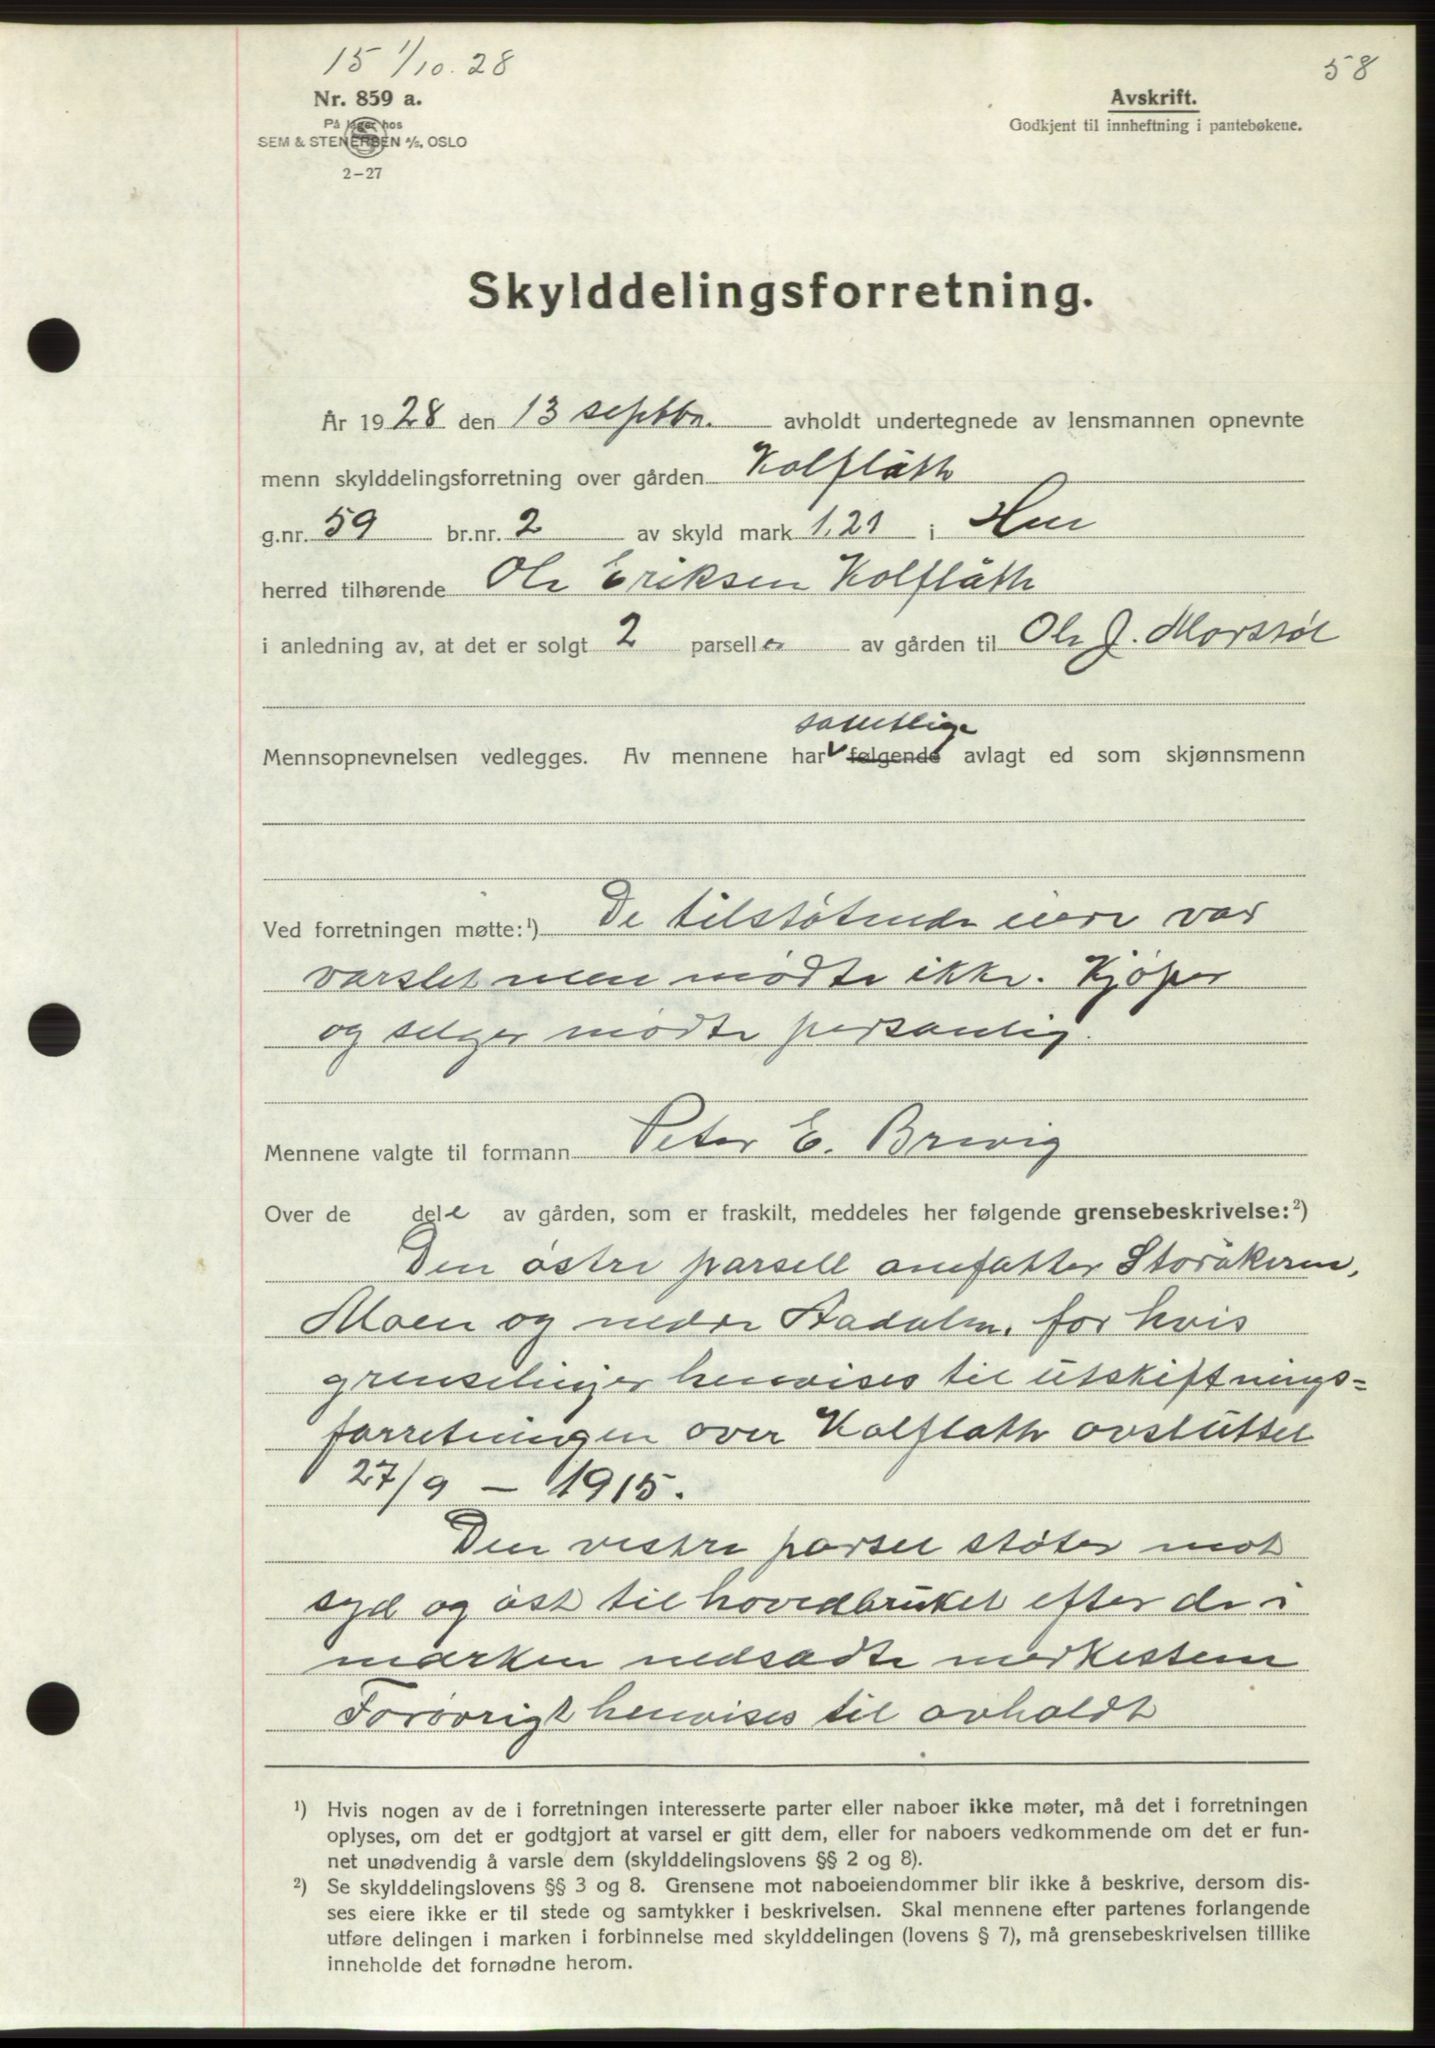 15 1/10. 28
58
Nr. 859 a.
På lager hos
SEM & STENERSEN A/S, OSLO
2-27
Avskrift.
Godkjent til innheftning i pantebøkene.
Skylddelingsforretning.
År 1928 den 13 septbr. avholdt undertegnede av lensmannen opnevnte
menn skylddelingsforretning over gården Kolflåth
g.nr. 59 br.nr. 2 av skyld mark 1,21 i Hur
herred tilhørende Ole Eriksen Kolflåth
i anledning av, at det er solgt 2 parseller av gården til Ole J. Morstøl
samtlige
Mennsopnevnelsen vedlegges. Av mennene har følgende avlagt ed som skjønnsmenn
Ved forretningen møtte:¹) De tilstøtende eiere var
varslet men mødte ikke. Kjøper
og selger mødte personlig.
Mennene valgte til formann Peter E. Brevig
Over de dele av gården, som er fraskilt, meddeles her følgende grensebeskrivelse:²)
Den østre parsell omfatter Storåkeren,
Moen og nedre for hvis
grenselinjer henvises til utskiftnings=
forretningen over Kolflath avsluttet
27/9 - 1915.
Den vestre parsel støter mot
syd og øst til hovedbruket efter de i
marken nedsadte merkestene
Forøvrigt henvises til avholdt
¹) Hvis nogen av de i forretningen interesserte parter eller naboer ikke møter, må det i forretningen
oplyses, om det er godtgjort at varsel er gitt dem, eller for naboers vedkommende om det er fun-
net unødvendig å varsle dem (skylddelingslovens §§ 2 og 8).
²) Se skylddelingslovens §§ 3 og 8. Grensene mot naboeiendommer blir ikke å beskrive, dersom dis-
ses eiere ikke er til stede og samtykker i beskrivelsen. Skal mennene efter partenes forlangende
utføre delingen i marken i forbinnelse med skylddelingen (lovens § 7), må grensebeskrivelsen tillike
inneholde det fornødne herom.